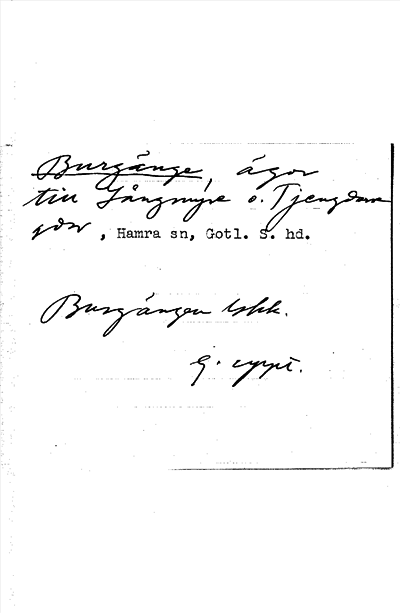 Burgänge, ägor
till Långmyre o. Tjengdarve
gdr, Hamra sn, Gotl. S. hd.
Burgängen lskk.
G. uppt.